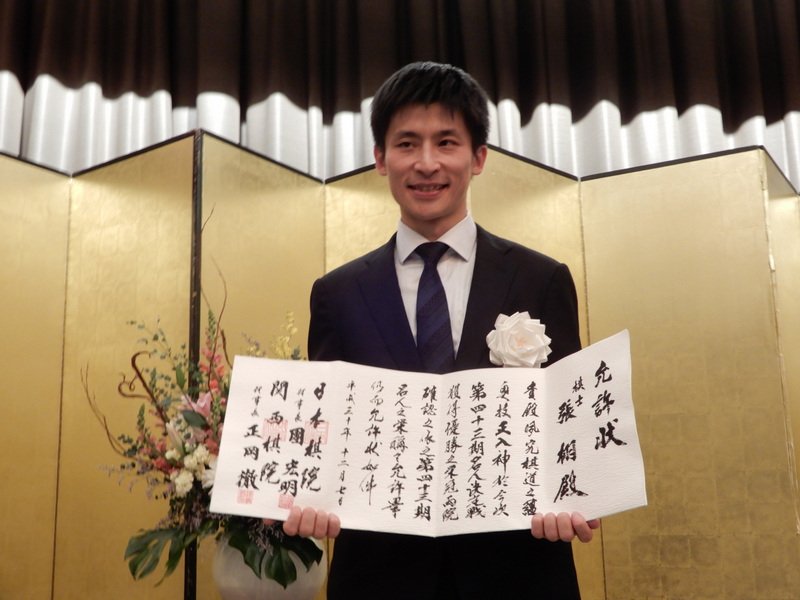 允許状
棋士 張栩殿
貴殿夙究棋道之蘊
奥技正入神於今次
第四十三期名人決定戦
獲得優勝之栄冠両院
確認之依之第四十三期
名人之栄称了允許畢
仍而允許状如件
平成三十年十二月七日
日本棋院
理事長 團宏明
関西棋院
理事長 正岡徹